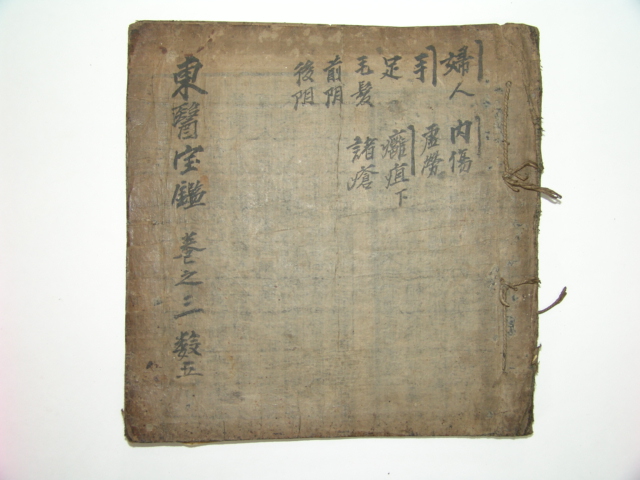 婦人 內傷
手 虛勞
足 癰疽下
毛髮 諸瘡
前阴
後阴
東醫宝鑑 卷之三 数五